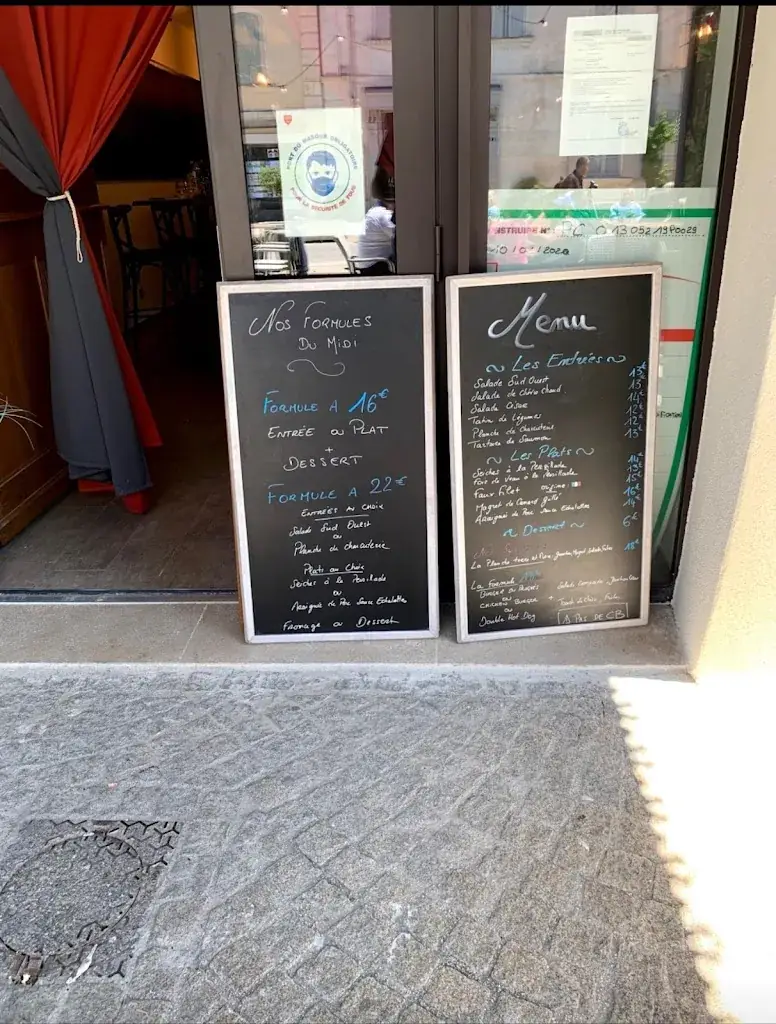 PORT DU MASQUE OBLIGATOIRE
POUR LA SÉCURITÉ DE TOUS
PC 013 052 19P0029
2020
Nos Formules
Du Midi
Formule a 16€
Entrée ou Plat
+
Dessert
Formule a 22€
Entrées au choix
Salade Sud Ouest
ou
Planche de charcuterie
Plats au Choix
Seiches à la Persillade
ou
Araignée de Porc Sauce Echalottes
Fromage ou Dessert
Menu
Les Entrées
Salade Sud Ouest 13€
Salade de Chèvre Chaud 13€
Salade César 14€
Tatin de Légumes 12€
Planche de Charcuterie 12€
Tartare de Saumon 13€
Les Plats
Seiches à la Persillade 14€
Foie de Veau à la Persillade 13€
Faux Filet origine 15€
Magret de Canard grillé 16€
Araignée de Porc Sauce Echalottes 14€
Dessert 6€
La Formule
ou
Chicken Burger +
ou
Double Hot Dog
⚠ Pas de CB